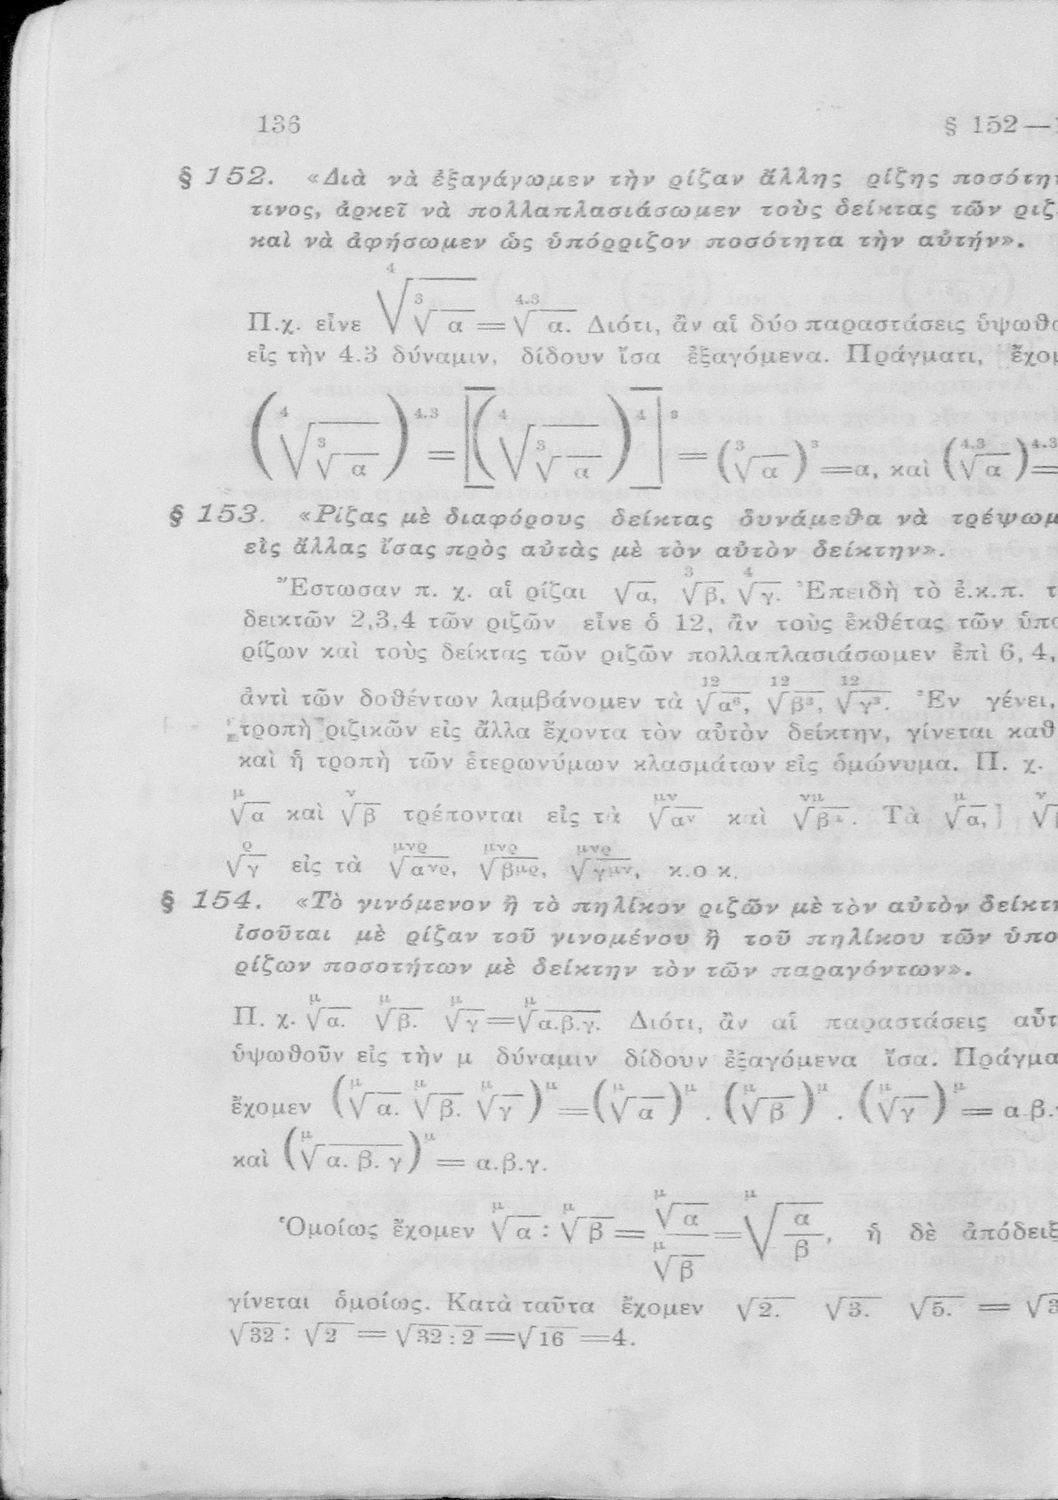 136
§ 152—
§ 152. «Διὰ νὰ ἐξαγάγωμεν τὴν ρίζαν ἄλλης ρίζης ποσότη
τινος, ἀρκεῖ νὰ πολλαπλασιάσωμεν τοὺς δείκτας τῶν ριζ
καὶ νὰ ἀφήσωμεν ὡς ὑπόρριζον ποσότητα τὴν αὐτήν».
Π.χ. εἶνε ⁴√(³√α) = ⁴·³√α. Διότι, ἂν αἱ δύο παραστάσεις ὑψωθο
εἰς τὴν 4.3 δύναμιν, δίδουν ἴσα ἐξαγόμενα. Πράγματι, ἔχομ
(⁴√(³√α))⁴·³ = [(⁴√(³√α))⁴]³ = (³√α)³ = α, καὶ (⁴·³√α)⁴·³ =
§ 153. «Ρίζας μὲ διαφόρους δείκτας δυνάμεθα νὰ τρέψωμ
εἰς ἄλλας ἴσας πρὸς αὐτὰς μὲ τὸν αὐτὸν δείκτην».
Ἔστωσαν π. χ. αἱ ρίζαι √α, ³√β, ⁴√γ. Ἐπειδὴ τὸ ἐ.κ.π. τ
δεικτῶν 2,3,4 τῶν ριζῶν εἶνε ὁ 12, ἂν τοὺς ἐκθέτας τῶν ὑπο
ρίζων καὶ τοὺς δείκτας τῶν ριζῶν πολλαπλασιάσωμεν ἐπὶ 6, 4,
ἀντὶ τῶν δοθέντων λαμβάνομεν τὰ ¹²√α⁶, ¹²√β³, ¹²√γ³. Ἐν γένει,
τροπὴ ριζικῶν εἰς ἄλλα ἔχοντα τὸν αὐτὸν δείκτην, γίνεται καθ
καὶ ἡ τροπὴ τῶν ἑτερωνύμων κλασμάτων εἰς ὁμώνυμα. Π. χ.
^μ√α καὶ ^ν√β τρέπονται εἰς τὰ ^μν√α^ν καὶ ^νμ√β^μ. Τὰ ^μ√α, ^ν√
^ρ√γ εἰς τὰ ^μνρ√α^νρ, ^μνρ√β^μρ, ^μνρ√γ^μν, κ.ο κ.
§ 154. «Τὸ γινόμενον ἢ τὸ πηλίκον ριζῶν μὲ τὸν αὐτὸν δείκτη
ἰσοῦται μὲ ρίζαν τοῦ γινομένου ἢ τοῦ πηλίκου τῶν ὑπο
ρίζων ποσοτήτων μὲ δείκτην τὸν τῶν παραγόντων».
Π. χ. ^μ√α. ^μ√β. ^μ√γ = ^μ√α.β.γ. Διότι, ἂν αἱ παραστάσεις αὗτ
ὑψωθοῦν εἰς τὴν μ δύναμιν δίδουν ἐξαγόμενα ἴσα. Πράγμα
ἔχομεν (^μ√α. ^μ√β. ^μ√γ)^μ = (^μ√α)^μ . (^μ√β)^μ . (^μ√γ)^μ = α.β.
καὶ (^μ√α. β. γ)^μ = α.β.γ.
Ὁμοίως ἔχομεν ^μ√α : ^μ√β = ^μ√α/^μ√β = ^μ√(α/β), ἡ δὲ ἀπόδειξ
γίνεται ὁμοίως. Κατὰ ταῦτα ἔχομεν √2. √3. √5. = √3
√32 : √2 = √32 : 2 = √16 = 4.